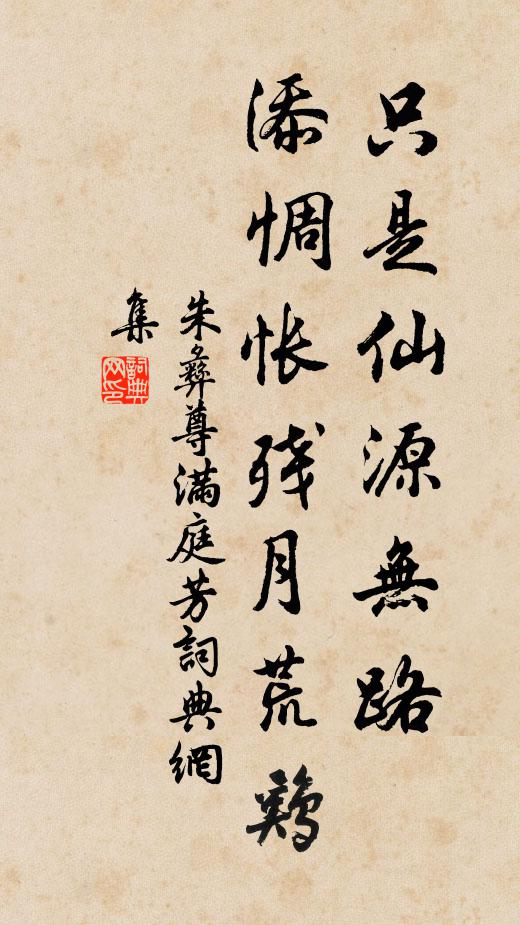 只是仙源無路
添惆怅残月荒鷄
朱彝尊滿庭芳詞典網
集
詞典
网印